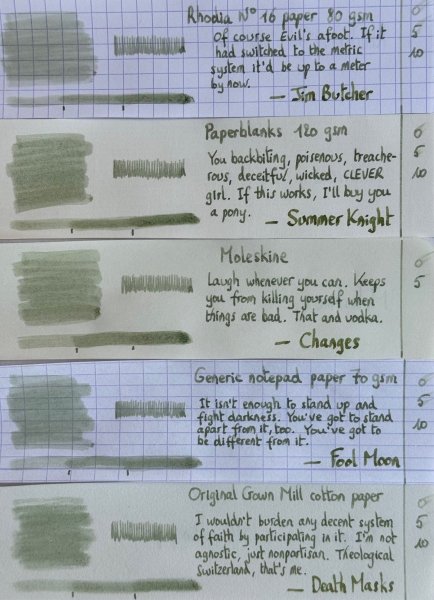 Rhodia N° 16 paper 80 gsm
Of course Evil's afoot. If it
had switched to the metric
system it'd be up to a meter
by now.
— Jim Butcher
0
5
10
Paperblanks 120 gsm
You backbiting, poisenous, treache-
rous, deceitful, wicked, CLEVER
girl. If this works, I'll buy you
a pony.
— Summer Knight
0
5
10
Moleskine
Laugh whenever you can. Keeps
you from killing yourself when
things are bad. That and vodka.
— Changes
0
5
Generic notepad paper 70 gsm
It isn't enough to stand up and
fight darkness. You've got to stand
apart from it, too. You've got to
be different from it.
— Fool Moon
0
5
10
Original Crown Mill cotton paper
I wouldn't burden any decent system
of faith by participating in it. I'm not
agnostic, just nonpartisan. Theological
Switzerland, that's me.
— Death Masks
0
5
10